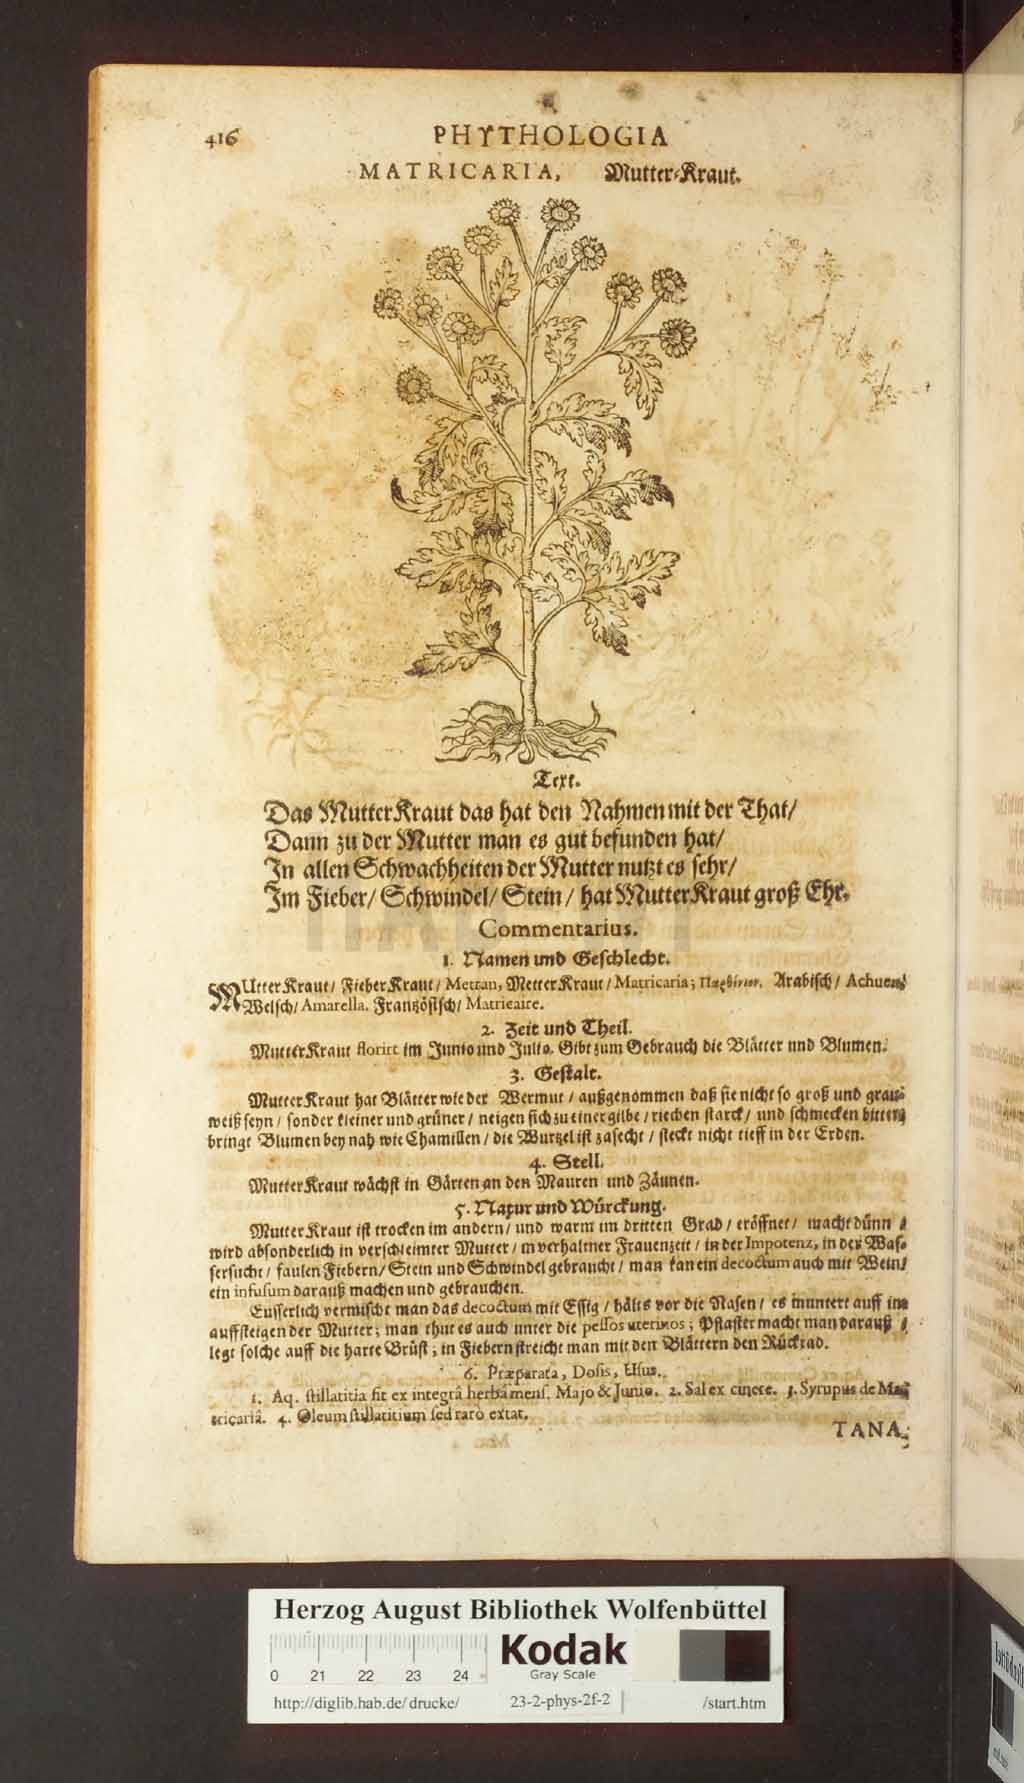 416
PHYTHOLOGIA
MATRICARIA, Mutter-Kraut.
Text.
Das MutterKraut das hat den Nahmen mit der That/
Dann zu der Mutter man es gut befunden hat/
In allen Schwachheiten der Mutter nutzt es sehr/
Im Fieber/ Schwindel/ Stein/ hat MutterKraut groß Ehr.
Commentarius.
1. Namen und Geschlecht.
MUtterKraut/ FieberKraut/ Mettran, MetterKraut/ Matricaria; Arabisch/
Welsch/ Amarella. Französisch/ Matricaire.
2. Zeit und Theil.
MutterKraut florirt im Junio und Julio. Gibt zum Gebrauch die Blätter und Blumen.
3. Gestalt.
MutterKraut hat Blätter wie der Wermut/ außgenommen daß sie nicht so groß und grau-
weiß seyn/ sonder kleiner und grüner/ neigen sich zu einer gilbe/ riechen starck/ und schmecken bitter/
bringt Blumen bey nah wie Chamillen/ die Wurtzel ist zasecht/ steckt nicht tieff in der Erden.
4. Stell.
MutterKraut wächst in Gärten an den Mauren und Zäunen.
5. Natur und Würckung.
MutterKraut ist trocken im andern/ und warm im dritten Grad/ eröffnet/ macht dünn/
wird absonderlich in verschleimter Mutter/ in verhaltner Frauenzeit/ in der Impotenz, in der Was-
sersucht/ faulen Fiebern/ Stein und Schwindel gebraucht/ man kan ein decoctum auch mit Wein/
ein infusum darauß machen und gebrauchen.
Eusserlich vermischt man das decoctum mit Essig/ hälts vor die Nasen/ es muntert auff im
auffsteigen der Mutter; man thut es auch unter die pessos uterinos; Pflaster macht man darauß/
legt solche auff die harte Brüst; in Fiebern streicht man mit den Blättern den Rückrad.
6. Præparata, Dosis, Usus.
1. Aq. stillatitia fit ex integrâ herbâ mens. Majo & Junio. 2. Sal ex cinere. 3. Syrupus de Ma-
tricariâ. 4. Oleum stillatitium sed rarò extat.
TANA-
Herzog August Bibliothek Wolfenbüttel
Kodak
Gray Scale
0 21 22 23 24
http://diglib.hab.de/drucke/ 23-2-phys-2f-2 /start.htm